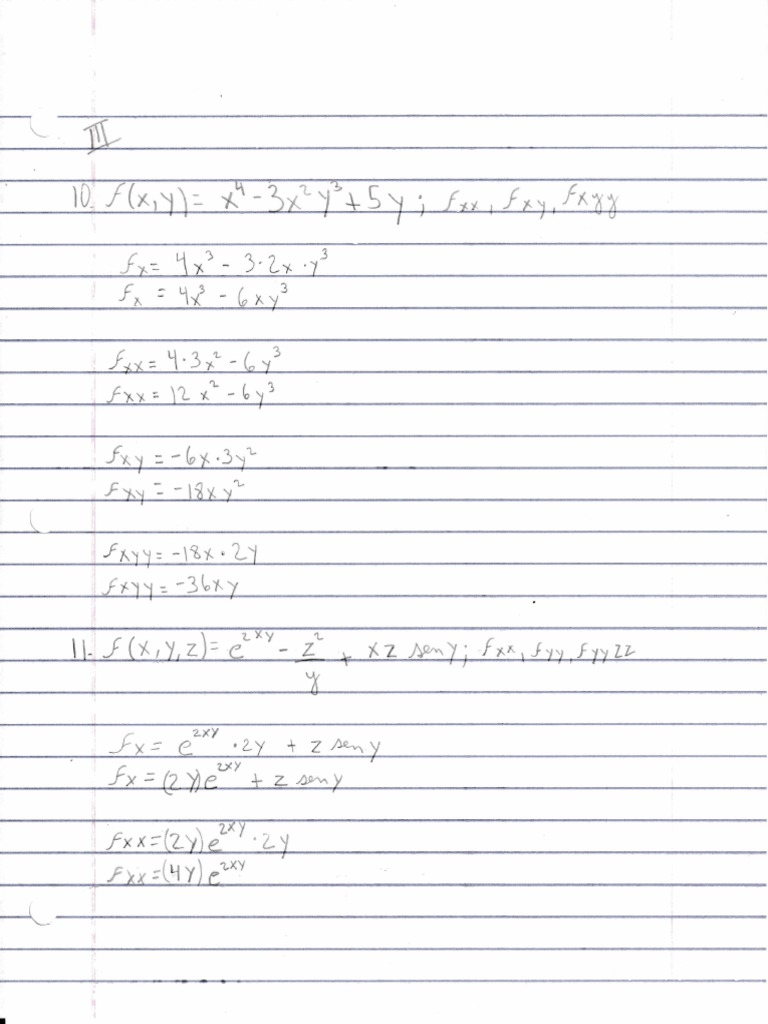 III
10. f(x,y) = x⁴ - 3x² y³ + 5y ; fxx, fxy, fxyy
fx = 4x³ - 3·2x·y³
fx = 4x³ - 6xy³
fxx = 4·3x² - 6y³
fxx = 12x² - 6y³
fxy = -6x·3y²
fxy = -18xy²
fxyy = -18x·2y
fxyy = -36xy
11. f(x,y,z) = e^2xy - z²/y + xz sen y; fxx, fyy, fyyzz
fx = e^2xy · 2y + z sen y
fx = (2y)e^2xy + z sen y
fxx = (2y)e^2xy · 2y
fxx = (4y)e^2xy